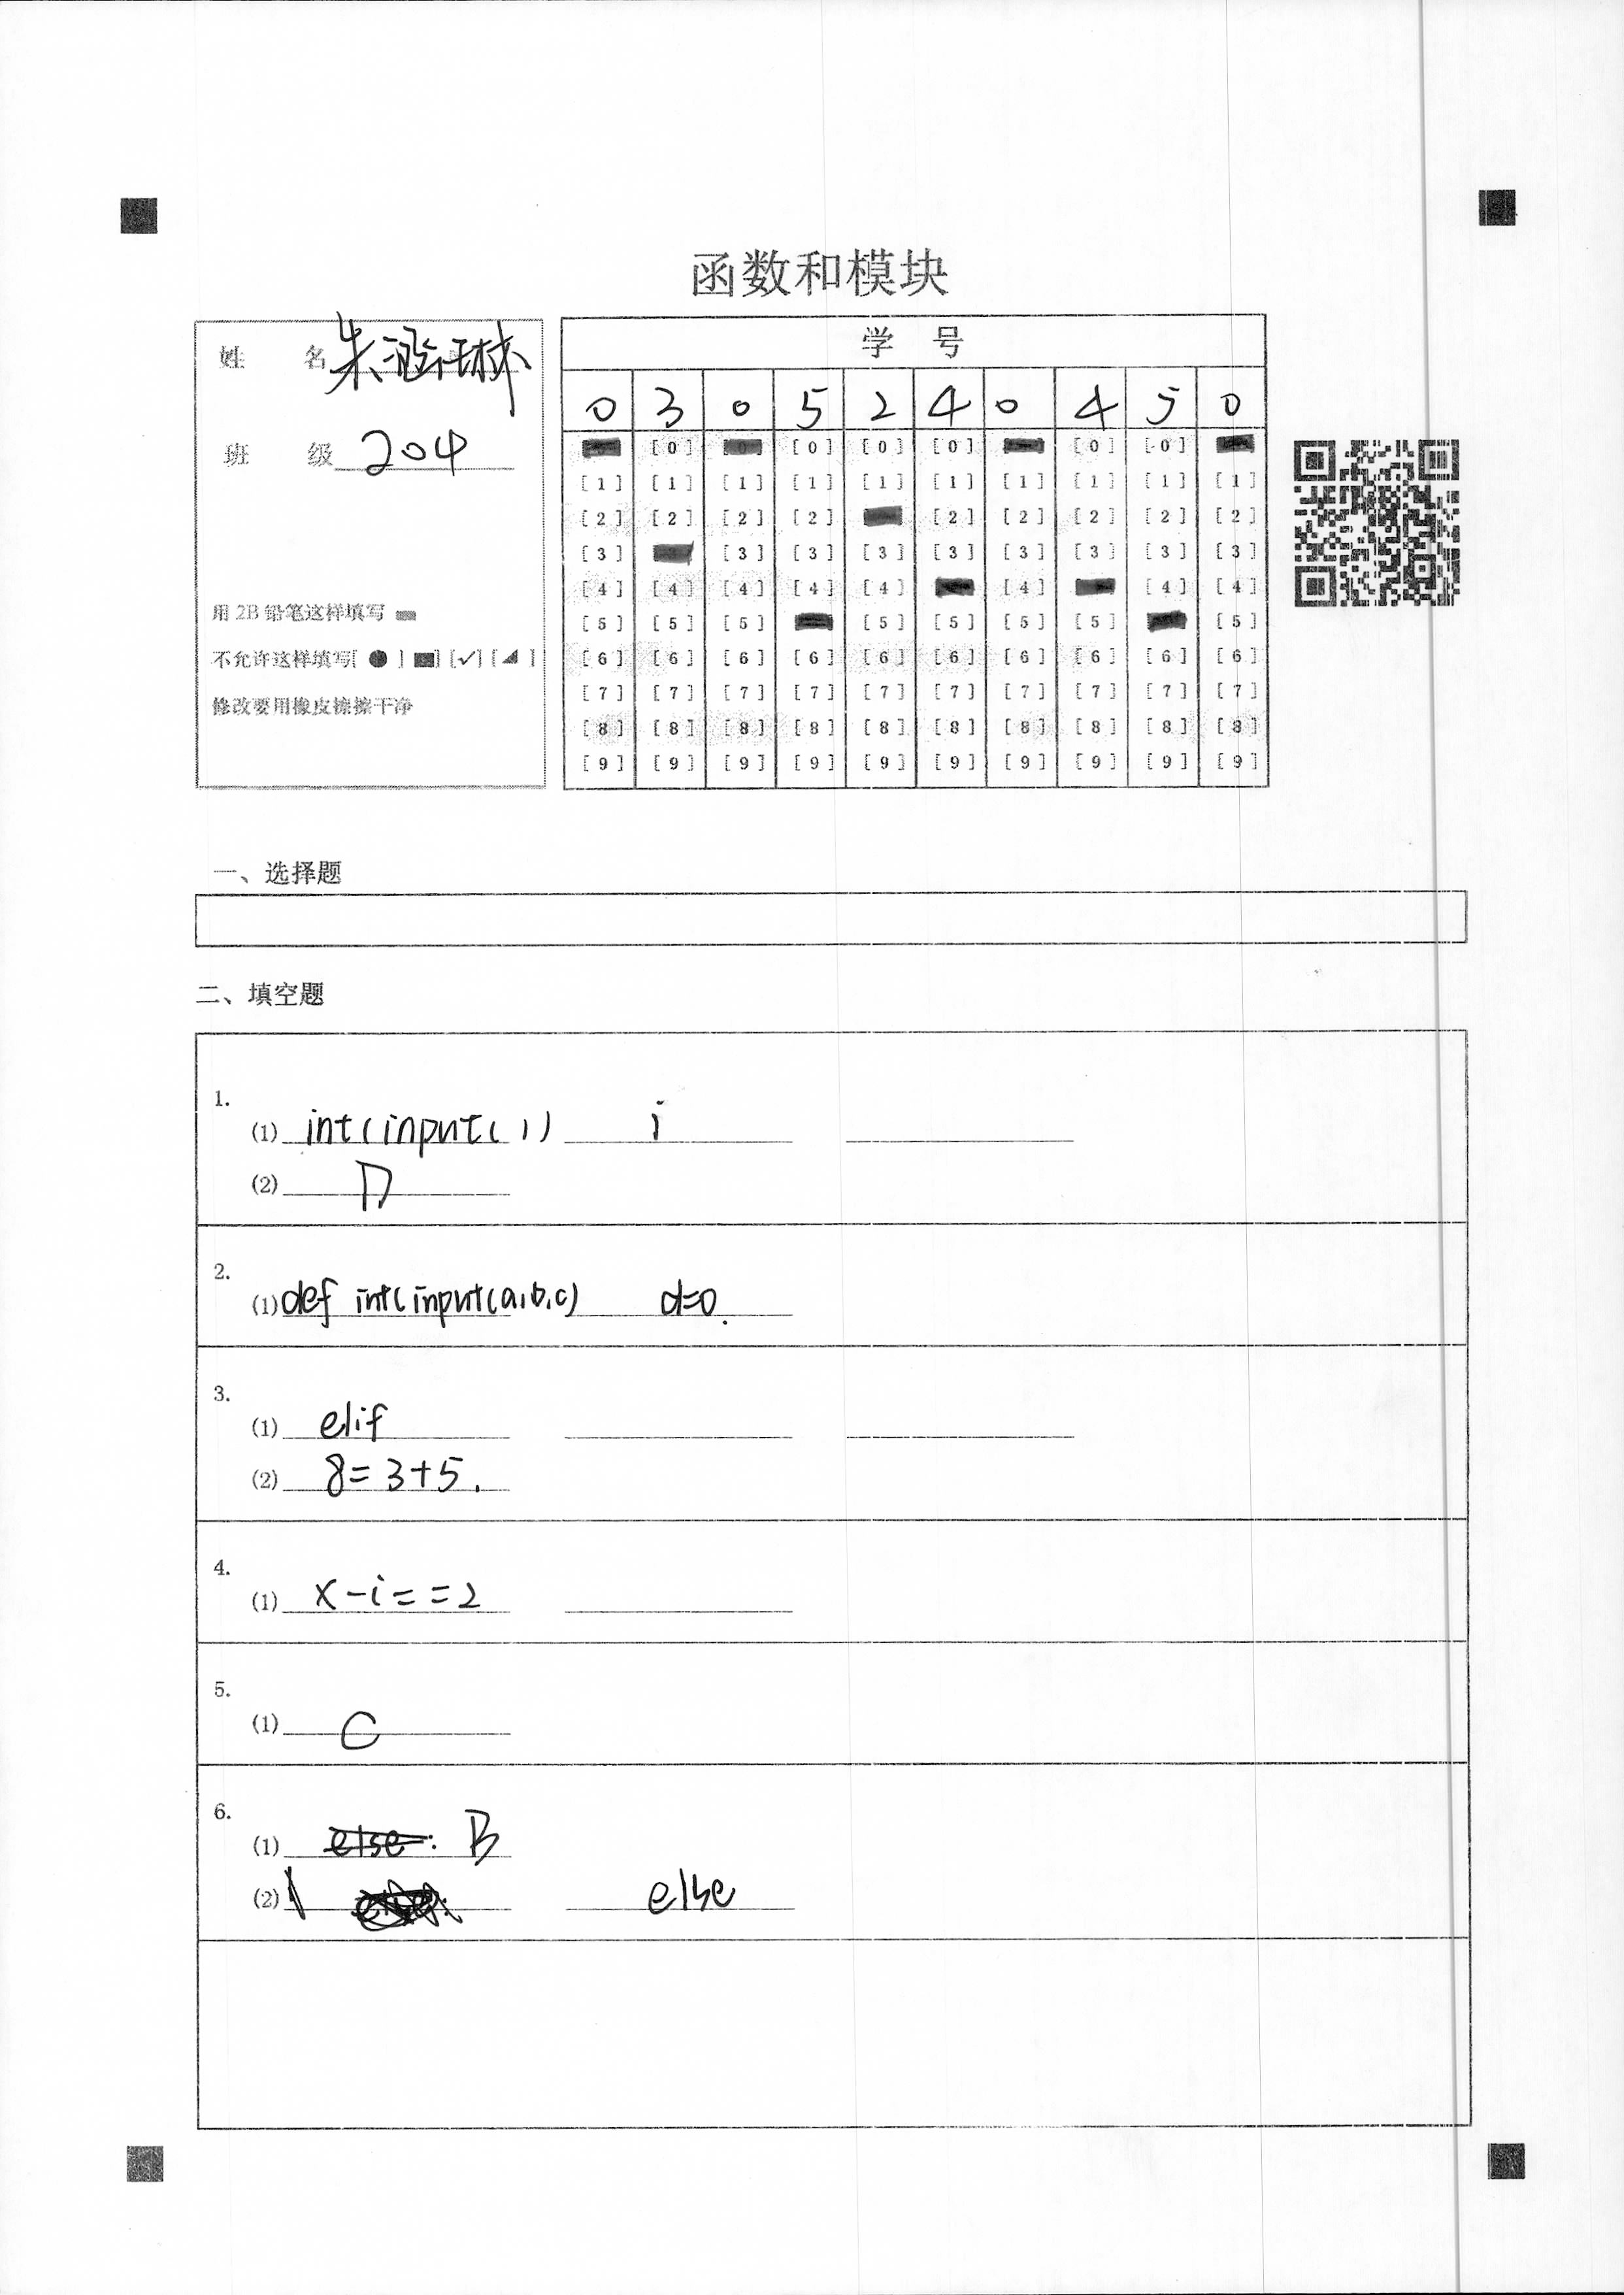 函数和模块
姓 名 朱涵
班 级 204
用 2B 铅笔这样填写
不允许这样填写[ ● ] [■] [✓] [◢ ]
修改要用橡皮擦擦干净
学 号
0 3 0 5 2 4 0 4 5 0
[0] [0] [0] [0] [0] [0]
[1] [1] [1] [1] [1] [1] [1] [1] [1] [1]
[2] [2] [2] [2] [2] [2] [2] [2] [2]
[3] [3] [3] [3] [3] [3] [3] [3] [3]
[4] [4] [4] [4] [4] [4] [4] [4]
[5] [5] [5] [5] [5] [5] [5] [5]
[6] [6] [6] [6] [6] [6] [6] [6] [6] [6]
[7] [7] [7] [7] [7] [7] [7] [7] [7] [7]
[8] [8] [8] [8] [8] [8] [8] [8] [8] [8]
[9] [9] [9] [9] [9] [9] [9] [9] [9] [9]
一、选择题
二、填空题
1.
(1) int(input()) i
(2) D
2.
(1) def int(input(a,b,c) d=0.
3.
(1) elif
(2) 8=3+5.
4.
(1) x-i==2
5.
(1) C
6.
(1) else: B
(2) else